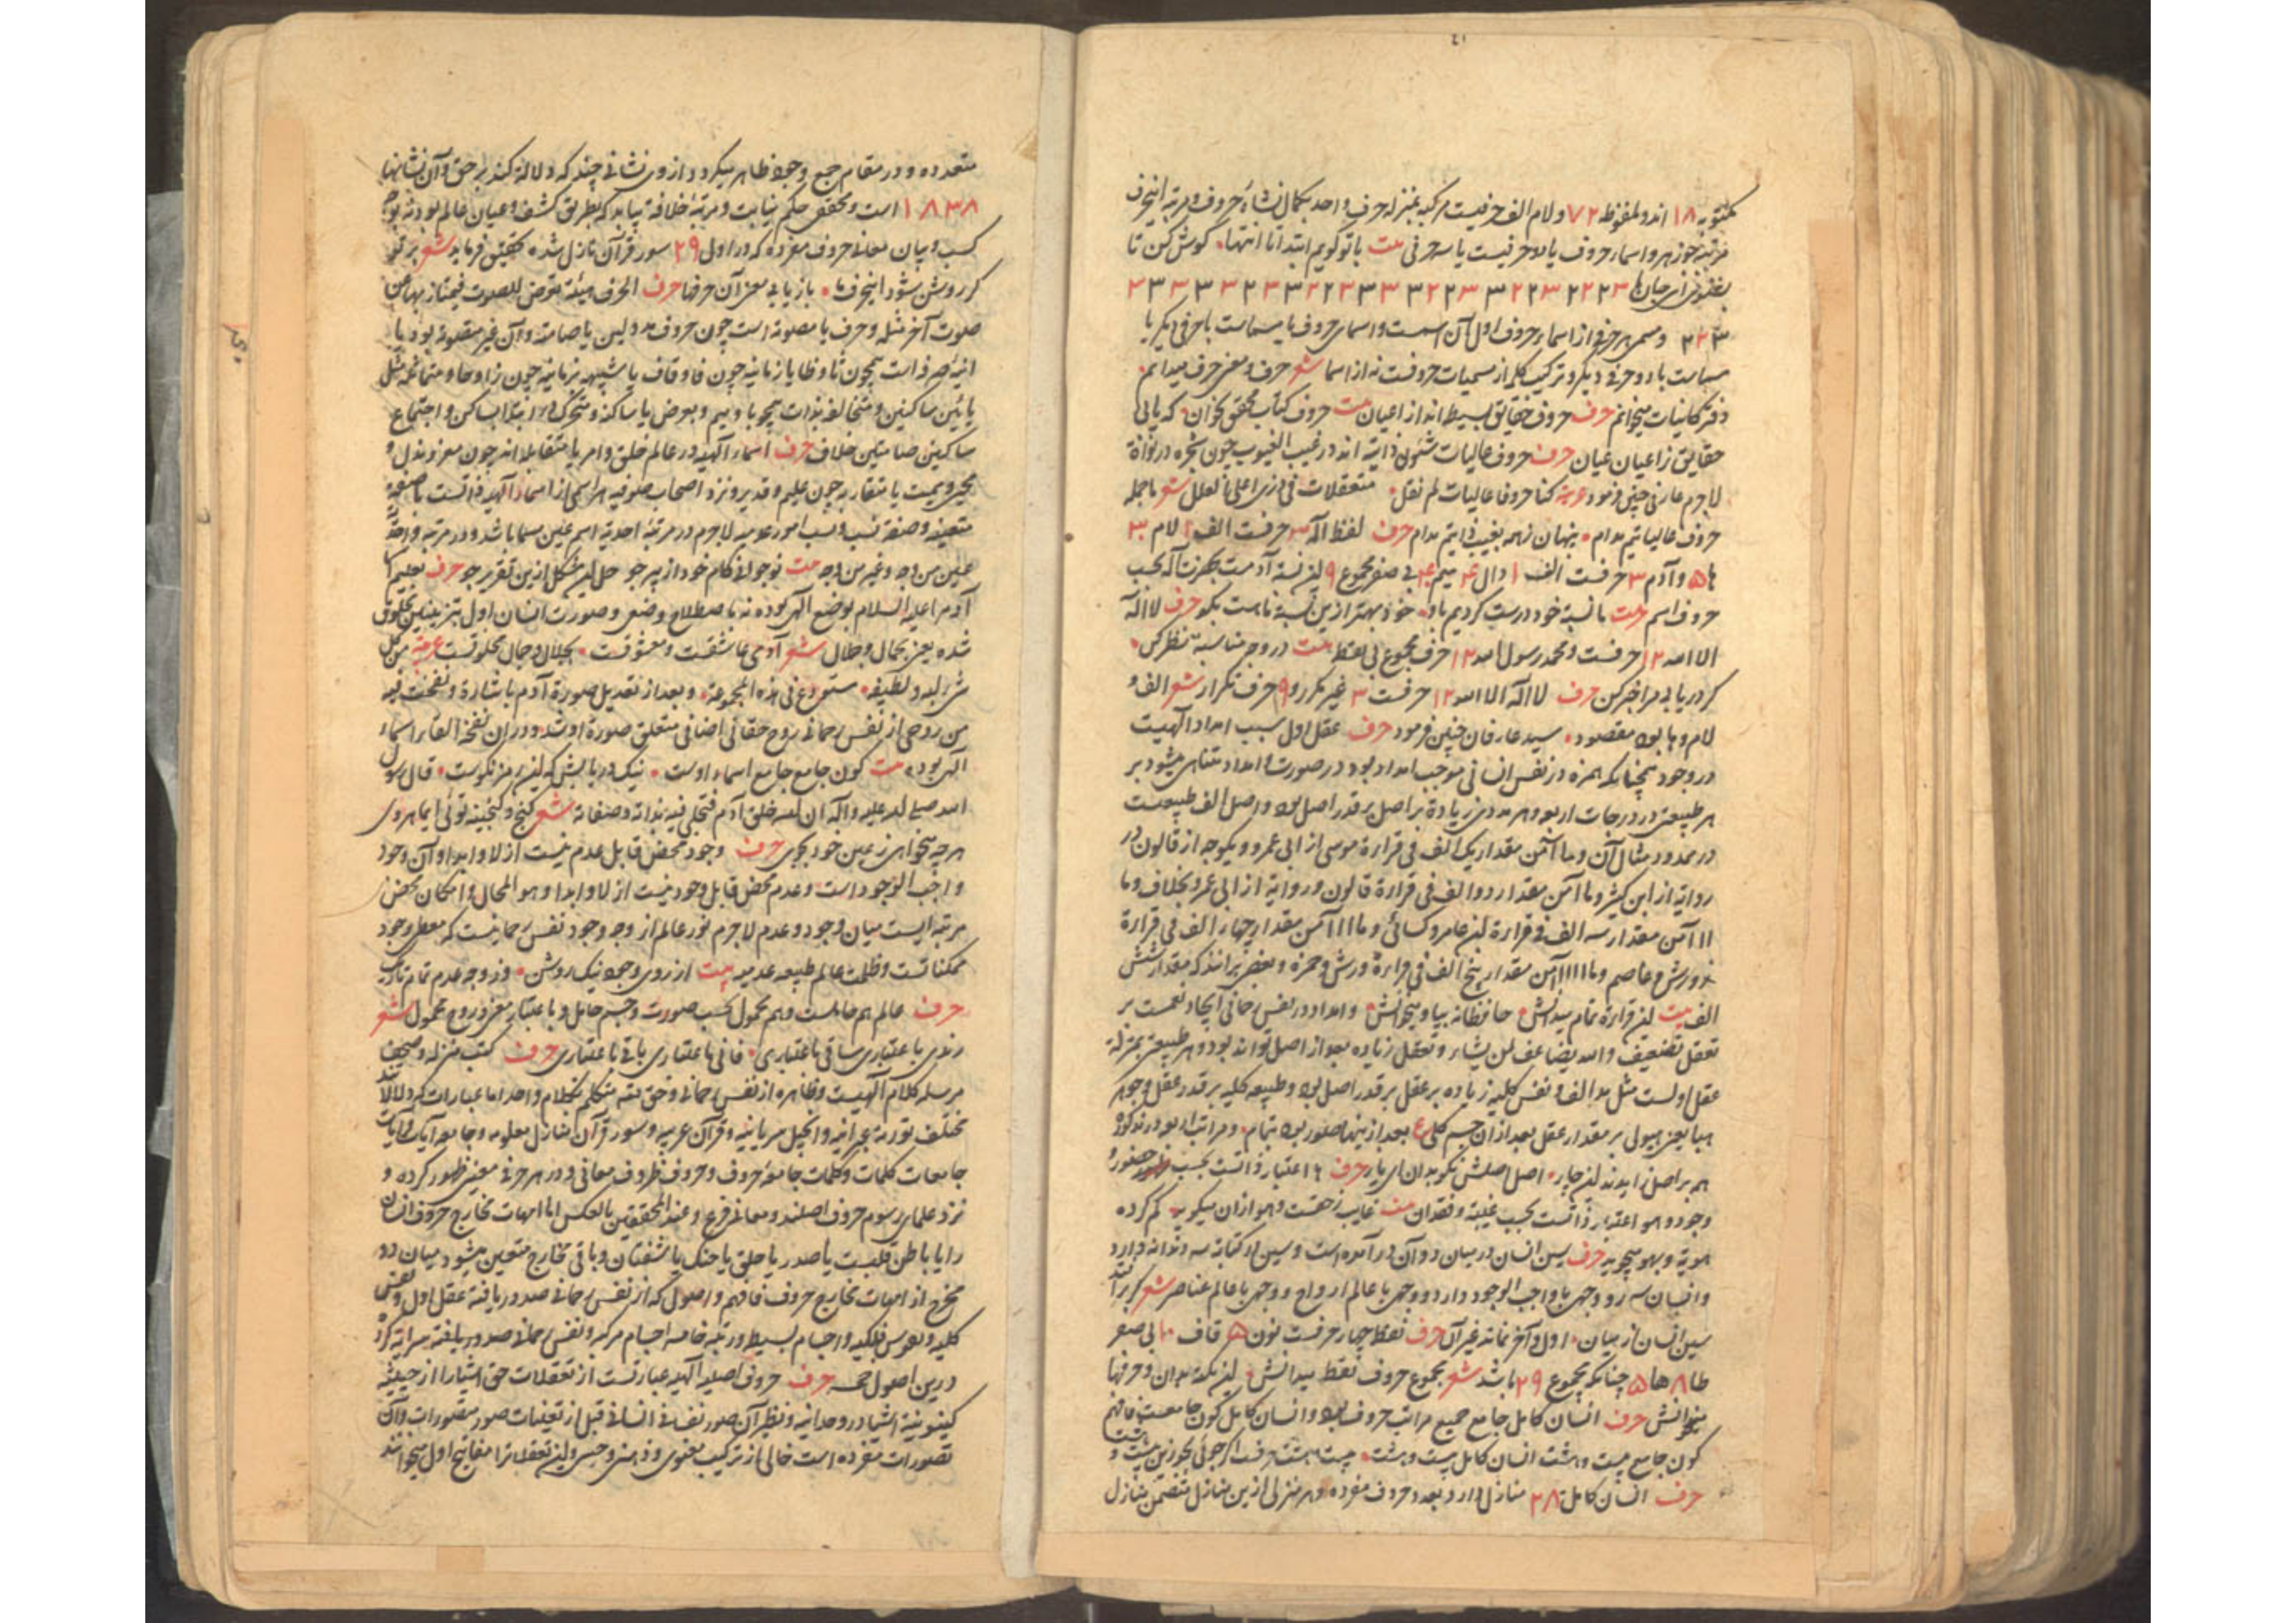 مکتوبه ۱۸ اند و ملفوظ ۷۲ و لام الف حرفیست مرکبه بمنزله حرف واحد
مرتبه و اسماء حروف یا دو حرفیست یا سه حرفی بیت با تو گویم ابتدا تا انتها گوش کن تا
بشنوی ای جان ما ۳ ۲ ۲ ۳
۳ ۲ ۲ و مسمی هر حرفی از اسماء حروف اول آن اسمست و اسمای حروف با مسماست با حرفی دیگر یا
مسماست با دو حرف دیگر و ترکیب کلم از مسمیات حروفست نه از اسما شعر حرف و معنی حرف میدانم
دفتر کاینات میخوانم حرف حروف حقایق بسیطه اند از اعیان بیت حروف کتاب محقق بخوان که یابی
حقایق ز اعیان عیان حرف حروف عالیات شئون ذاتیه اند در غیب الغیوب چون شجره در نواة
لاجرم عارفی چنین فرمود عربیه کنا حروفا عالیات لم نقل متعلقات فی ذری اعلی القلل شعر ما جمله
حروف عالیاتیم مدام پنهان ز همه بغیب ذاتیم مدام حرف لفظ اله ۳ حرفست الف ۱ لام ۳
ها ۵ و آدم ۳ حرفست الف ۱ دال ۴ میم ۴ بی صفر مجموع ۹ این نسبة آدمست بحضرت اله بحسب
حروف اسم بیت ما نسبة خود درست کردیم باو خود بهتر ازین نسبة ما هست بگو حرف لا اله
الا الله ۱۲ حرفست و محمد رسول الله ۱۲ حرف مجموع بی نقط بیت در وجه مناسبة نظر کن
گر دریابی مرا خبر کن حرف لا اله الا الله ۱۲ حرفست ۳ غیر مکرر و ۹ حرف تکرار شعر الف و
لام و ها بود مقصود سید عارفان چنین فرمود حرف عقل اول سبب امداد الهیت
در وجود همچنانکه همزه در نفس انسانی موجب امداد بود در صورت و امداد متناهی میشود بر
هر طبیعتی در درجات اربعه و هر مدی زیادة بر اصل بر قدر اصل بود و اصل الف طبیعیست
در ممدود مثال آن و ما آمن مقدار یک الف فی قراءة موسی از ابی عمرو و یکوجه از قالون در
روایة از ابن کثیر و ما آمن مقدار دو الف فی قراءة قالون و روایة از ابی عمرو بخلاف و ما
ااا آمن مقدار سه الف فی قراءة ابن عامر و کسائی و ما اااا آمن مقدار چهار الف فی قراءة
ورش و عاصم و ما ااااا آمن مقدار پنج الف فی قراءة ورش و حمزه و بعضی برانند که مقدار شش
الف بیت این قراءة تمام میدانش حافظانه بیا و میخوانش و امداد در نفس رحمانی ایجاد نعمست بر
تعقل تضعیف والله یضاعف لمن یشاء و تعقل زیاده بعد از اصل تواند بود و هر طبیعتی بمنزلة
عقل اولست مثل مد الف و نفس کلیه زیاده بر عقل بر قدر اصل بود و طبیعه کلیه بر قدر عقل و جوهر
هبا یعنی هیولی بر مقدار عقل بعد از آن جسم کلی ع بعد ازینها صور بود بتمام و مراتب اربعه در مد کورة
هم بر اصل زایدند این چار اصل اصلش نکو بدان ای یار حرف ها اعتبار ذاتست بحسب حضور و
وجود و هو اعتبار ذاتست بحسب غیبة و فقدان بیت غایب ز خودست و هو ازان میگوید گم کرده
هویة و بهو میجوید حرف سین انسان در میان دو آن در آمده است و سین در کتابة سه دندانه دارد
و انسان سه رو دارد وجهی با واجب الوجود دارد و وجهی با عالم ارواح و وجهی با عالم عناصر شعر گر برآید
سین انسان از میان اول و آخر نماند غیر آن حرف نقط چهار حرفست نون ۵ قاف ۱۰ بی صفر
طا ۸ ها ۵ چنانکه مجموع ۲۹ باشد شعر مجموع حروف نقط میدانش این نکته بدان و حرفها
میخوانش حرف انسان کامل جامع جمیع مراتب حروف بود و انسان کامل کون جامعست فافهم
کون جامع بیست و هشت انسان کامل بیست و هشت
حرف انسان کامل ۲۸ منازل دارد بعدد حروف مفرده و هر منزلی ازین منازل متضمن منازل
متعدده و در مقام جمع وجود ظاهر میگردد از وی نشانی چند که دلالة کند بر حق و آن نشانها
۱۸۳۸ است و محقق حکم نیابت و مرتبه خلافة بیابد که بطریق کشف و عیان عالم بود نه بوجه
کسب و بیان معانی حروف مفرده که در اول ۲۹ سور قرآن نازل شده تحقیق فرماید شعر بر تو
گر روشن شود این حرف ما بازیابی معنی آن حرفها حرف الحرف هیئة تعرض للصوت فیمتاز بها عن
صوت آخر مثله و حرف یا مصوته است چون حروف مد و لین یا صامته و آن غیر مصوته بود یا
انیه صرفه است همچون تا و طا یا زمانیه چون فا و قاف یا شبیهه بزمانیه چون را و حا و متماثله مثل
یائین ساکنین و متخالفه بذات همچو با و میم و بعرض یا ساکنه و متحرکه و ابتدا بساکن و اجتماع
ساکنین صامتین خلاف حرف اسماء الهیه در عالم خلق و امر یا متقابله اند چون معز و مذل و
محیی و ممیت یا متقاربه چون علیم و قدیر و نزد اصحاب صوفیه هر اسمی از اسماء الهیه ذاتست با صفة
متعینه و صفة نسب و نسب امور عدمیه لاجرم در مرتبه احدیة اسم عین مسما باشد و در مرتبه واحدیة
عین من وجه و غیر من وجه بیت نوجوانی کام خود از پیر جو حل این مشکل ازین تقریر جو حرف تعلیم اسما
آدم را علیه السلام بوضع الهی بوده نه باصطلاح وضعی و صورت انسان اول بتزیینین مخلوق
شده یعنی بجمال و جلال شعر آدمی عاشقست و معشوقست بجلال و جمال مخلوقست عربیة من کل
شیء لبه و لطیفه مستودع فی هذه المجموعة و بعد از تعدیل صورة آدم باشارة و نفخت فیه
من روحی از نفس رحمانی روح حقانی اضافی متعلق صورة او شد و در ان نفخه القاء اسماء
الهی بود بیت کون جامع جامع اسماء اوست نیک دریابش که این رمز نکوست قال رسول
الله صلی الله علیه و آله ان الله خلق آدم فتجلی فیه بذاته و صفاته شعر گنج و گنجینه توئی ای ماهروی
هر چه میخواهی ز عین خود بجوی حرف وجود محض قابل عدم نیست ازلا و ابدا و آن وجود
واجب الوجود است و عدم محض قابل وجود نیست ازلا و ابدا و هو المحال و امکان محض
مرتبه ایست میان وجود و عدم لاجرم نور عالم از وجه وجود نفس رحمانیست که معطی وجود
ممکناتست و ظلمت عالم طبیعه عدمیه بیت از روی وجود نیک روشن وز وجه عدم تمام تاریک
حرف عالم هم حاملست و هم محمول بحسب صورت و جسم حامل و باعتبار معنی و روح محمول شعر
رندی باعتباری ساقی باعتباری فانی باعتباری باقی باعتباری حرف کتب منزله و صحیفه
مرسله کلام الهیست و ظاهره از نفس رحمانی و حق متکلم بکلام واحد اما عبارات که دلالات
مختلف توریة عبرانیه و انجیل سریانیه و قرآن عربیه و سور قرآن منازل معلومه و جامعه آیات و آیات
جامعات کلمات و کلمات جامعه حروف و حروف ظروف معانی و در هر حرفی معنیی ظهور کرده و
نزد علماء رسوم حروف اصلند و معانی فرع و عند المحققین بالعکس اما امهات مخارج حروف انسان
را یا باطن قلبست یا صدر یا حلق یا حنک یا شفتان و باقی مخارج متعین میشود میان دو
مخرج از امهات مخارج حروف فافهم و اصول که از نفس رحمانی صدور یافته عقل اول و نفس
کلیه و نفوس فلکیه و اجسام بسیطه و رتبه خامسه اجسام مرکبه و نفس رحمانی صدور یافته سرایة کرد
درین اصول خمسه حرف حروف اصلیه الهیه عبارتست از تعقلات حق اشیا را از حیثیة
کینونیة اشیا در وحدانیه و نظیر آن صور نفسانی انسانی قبل از تعینات صور متصورات و آن
تصورات مفرده است خالی از ترکیب معنوی و ذهنی و حسی و این تعقلات را مفاتیح اول میخوانند